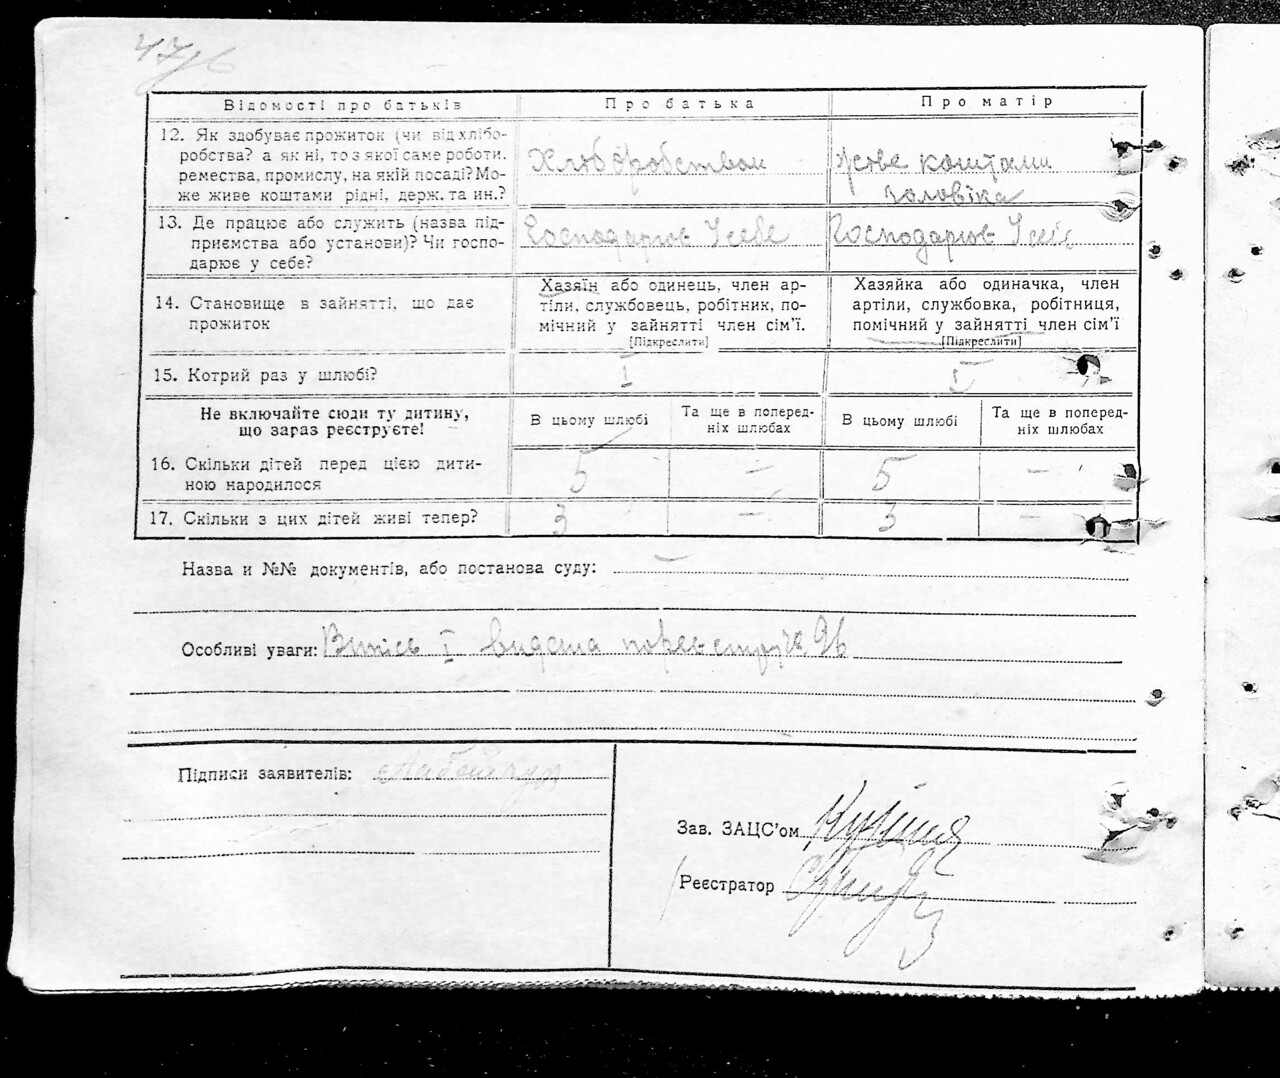 47/6
Відомості про батьків Про батька Про матір
12. Як здобуває прожиток (чи від хлібо-
робства? а як ні, то з якої саме роботи,
ремества, промислу, на якій посаді? Мо-
же живе коштами рідні, держ. та ин.?
Хлібробством
живе коштами
чоловіка
13. Де працює або служить (назва під-
приємства або установи)? Чи госпо-
дарює у себе?
Господарює У себе
Господарює У себе
14. Становище в зайнятті, що дає
прожиток
Хазяїн або одинець, член ар-
тіли, службовець, робітник, по-
мічний у зайнятті член сім'ї.
[Підкреслити]
Хазяйка або одиначка, член
артіли, службовка, робітниця,
помічний у зайнятті член сім'ї
[Підкреслити]
15. Котрий раз у шлюбі? I I
Не включайте сюди ту дитину,
що зараз реєструєте!
В цьому шлюбі
Та ще в поперед-
ніх шлюбах
В цьому шлюбі
Та ще в поперед-
ніх шлюбах
16. Скільки дітей перед цією дити-
ною народилося
5 – 5 –
17. Скільки з цих дітей живі тепер? 3 – 3 –
Назва и №№ документів, або постанова суду: –
Особливі уваги: Випісь I видана
Підписи заявителів:
Зав. ЗАЦС'ом
Реєстратор